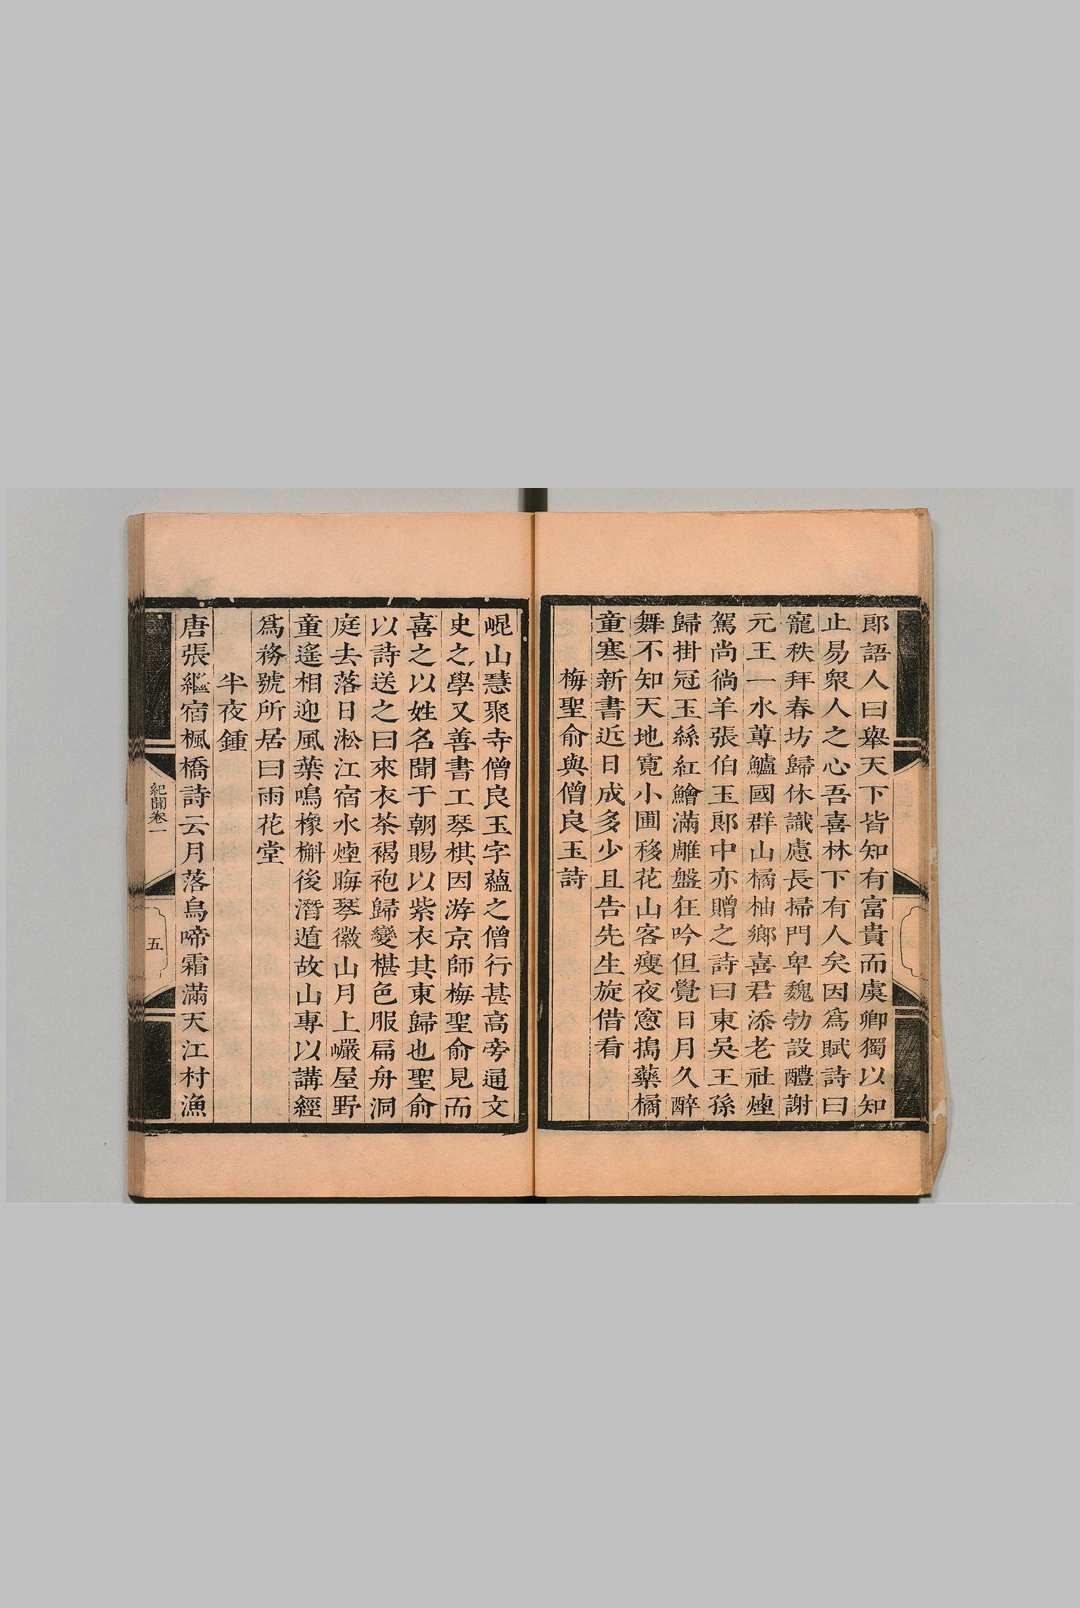 郎語人曰舉天下皆知有富貴而虞卿獨以知
止易衆人之心吾喜林下有人矣因爲賦詩曰
寵秩拜春坊歸休識慮長掃門卑魏勃設醴謝
元王一水蓴鱸國群山橘柚鄉喜君添老社煙
駕尚徜羊張伯玉郎中亦贈之詩曰東吳王孫
歸掛冠玉絲紅鱠滿雕盤狂吟但覺日月久醉
舞不知天地寬小圃移花山客瘦夜窻搗藥橘
童寒新書近日成多少且告先生旋借看
梅聖俞與僧良玉詩
崐山慧聚寺僧良玉字蘊之僧行甚高旁通文
史之學又善書工琴棋因游京師梅聖俞見而
喜之以姓名聞于朝賜以紫衣其東歸也聖俞
以詩送之曰來衣茶褐袍歸變椹色服扁舟洞
庭去落日淞江宿水煙晦琴徽山月上巗屋野
童遙相迎風葉鳴橡槲後潛遁故山專以講經
爲務號所居曰雨花堂
半夜鍾
唐張繼宿楓橋詩云月落烏啼霜滿天江村漁
紀聞卷一
五